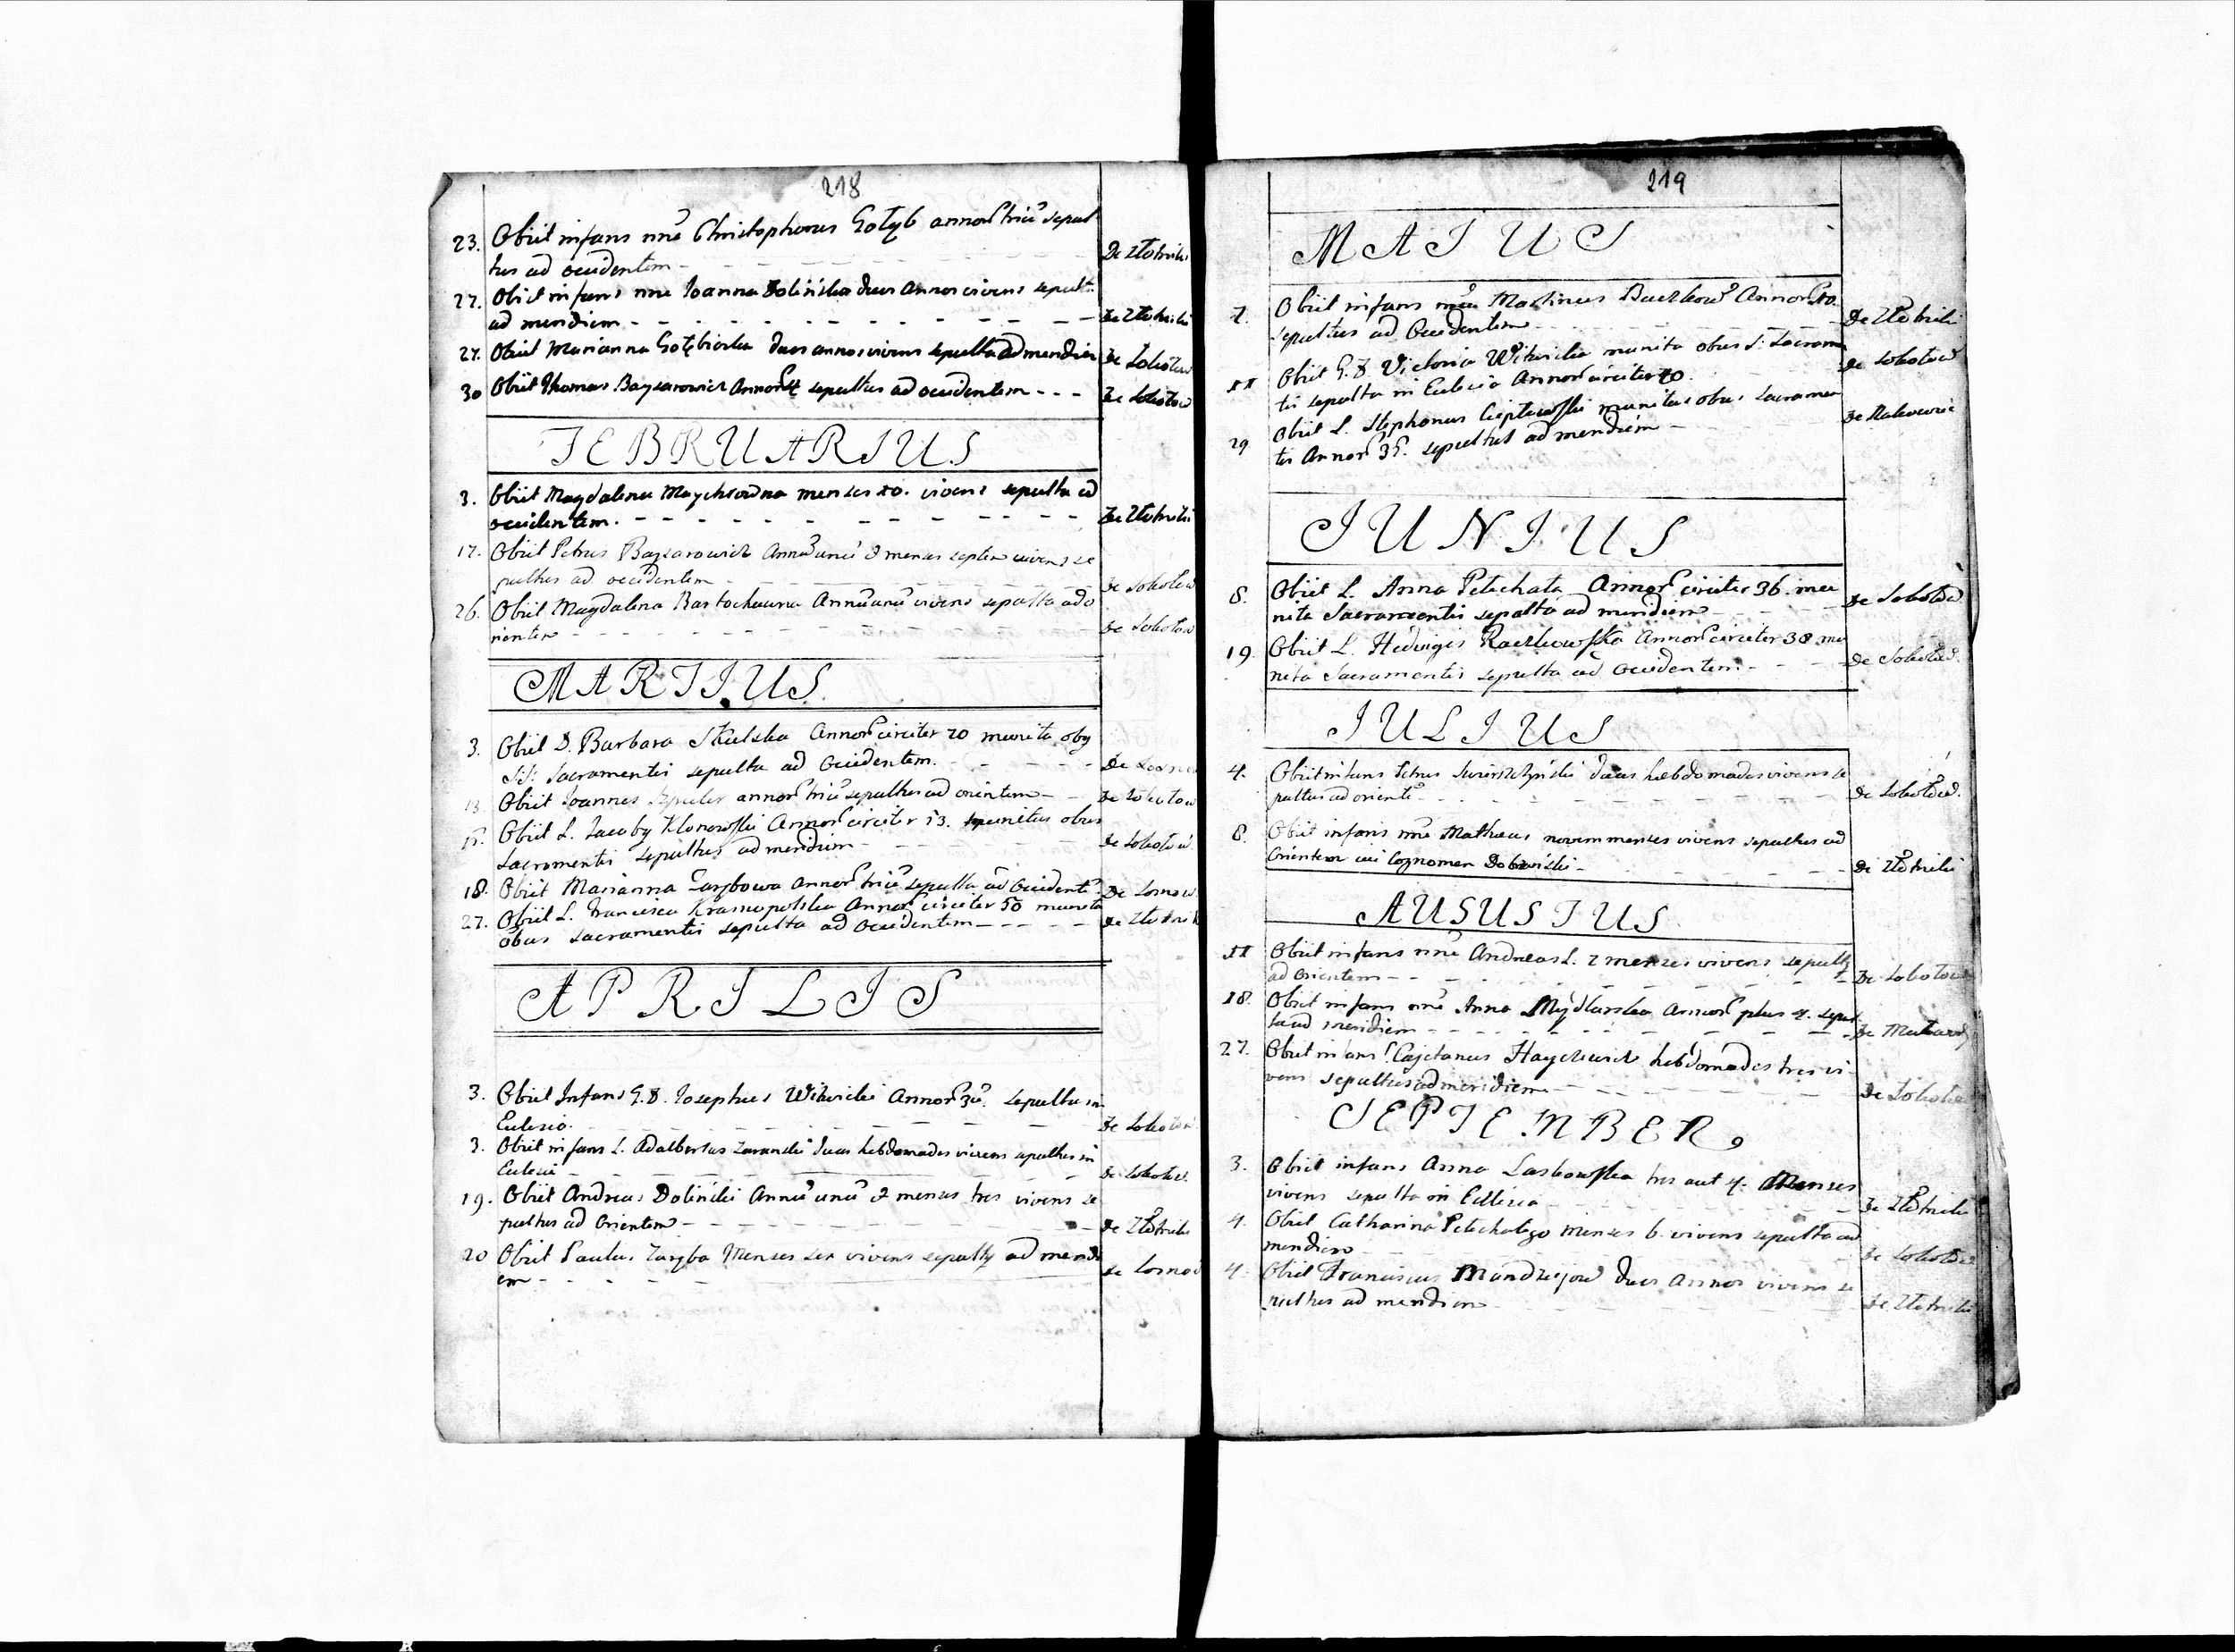 218
23. Obiit infans nnē Christophorus Gołąb annor triū sepul
tus ad occidentem - De Złotniki
27. Obiit infans nne Joanna Dolińska duos Annos vivens sepult.
ad meridiem - De Złotniki
27. Obiit Marianna Gołębiosка duos annos vivens sepulta ad meridiem De Sobotow
30 Obiit Thomas Baysarowicz Annor 4 sepultus ad occidentem - - - De Sobotow
FEBRUARIUS
3. Obiit Magdalena Maychrowna menses 10. vivens sepulta ad
occidentem. - De Złotniki
17. Obiit Petrus Baysarowicz Annū unū & menses septem vivens se
pultus ad occidentem - De Sobotow
26. Obiit Magdalena Bartochowna Annū unū vivens sepulta ad o
rientem - De Sobotow
MARTIUS
3. Obiit D. Barbara Skulska Annor circiter 20 munita obg
SS: Sacramentis sepulta ad Occidentem. - De
13. Obiit Joannes annor triū sepultus ad orientem - De Sobotow
15. Obiit L. Jacoby Klonowski Annor circiter 53. munitus obus
Sacramentis sepultus ad meridiem - De Sobotow
18. Obiit Marianna Zarębowa annor triū sepulta ad Occidentē - De Sosnow
27. Obiit L. Francisca Krasnopolska Annor circiter 50 munita
obus sacramentis sepulta ad Occidentem - De Złotnik
APRILIS
3. Obiit Infans G. D. Josephus Witwicki Annor 3ū. sepultus in
Eclesia. - De Sobotow
3. Obiit infans L. Adalbertus Zaranski duas hebdomades vivens sepultus in
Eclesia - De Sobotow.
19. Obiit Andreas Doliński Annū unū & menses tres vivens se
pultus ad Orientem - De Złotniki
20 Obiit Paulus Zaręba Menses sex vivens sepultg ad meridi
em - De Sosnow
219
MAIUS
7. Obiit infans nnē Martinus Buczkow Annor 10.
sepultus ad Occidentem De Złotniki
11 Obiit G. D. Victoria Witwicka munita obus S: Sacramen
tis sepulta in Eclesia Annor circiter 70. De Sobotow
29 Obiit L. Stephanus munitus obus Sacramen
tis Annor 35. sepultus ad meridiem - De Rakowiec
IUNIUS
8. Obiit L. Anna Petechata Annor circiter 36. mu
nita Sacramentis sepulta ad meridiem De Sobotow
19. Obiit L. Hedvigis Raczkowska Annor circiter 38 mu
nita Sacramentis sepulta ad Occidentem - De Sobotow.
IULIUS
4. Obiit infans Petrus duas hebdomades vivens se
pultus ad orientē - De Sobotow.
8. Obiit infans nnē Mathaeus novem menses vivens sepultus ad
Orientem cui Cognomen - De Złotniki
AUGUSTUS
11 Obiit infans nnē Andreas L. 7 menses vivens sepultg
ad Orientem - De Sobotow
18. Obiit infans nnē Anna Mydlarska Annor plus 4. sepul
ta ad meridiem - De
27. Obiit infans Cajetanus Haychuwich hebdomades tres vi-
vens sepultus ad meridiem De Sobotow
SEPTEMBER
3. Obiit infans Anna Laskowska tres aut 4. Menses
vivens sepulta in Ecclesia De Złotniki
4. Obiit Catharina Petechatego menses 6 vivens sepulta ad
meridiem De Sobotow
4. Obiit Franciscus Mandziejow duos Annos vivens se
pultus ad meridiem De Złotniki